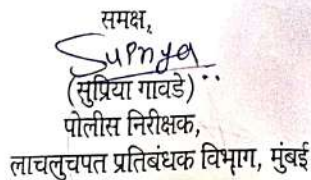 समक्ष,
Supriya
(सुप्रिया गावडे)
पोलीस निरीक्षक,
लाचलुचपत प्रतिबंधक विभाग, मुंबई